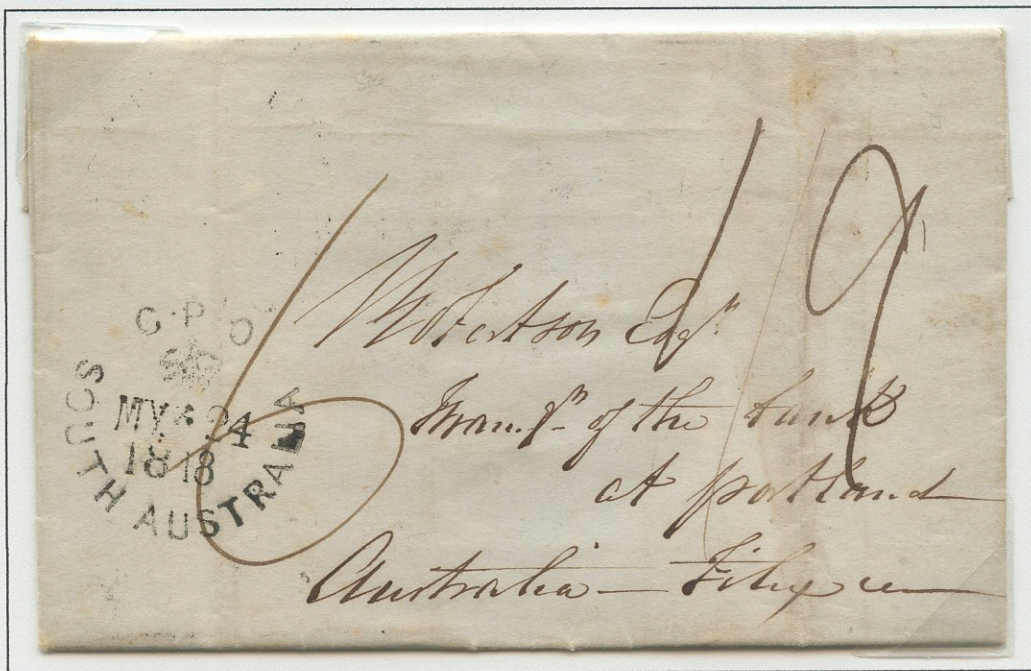 G.P.O
MY 24
1848
SOUTH AUSTRALIA
6
1/9
Robertson Esqr
Manr of the bank
at portland
Australia —